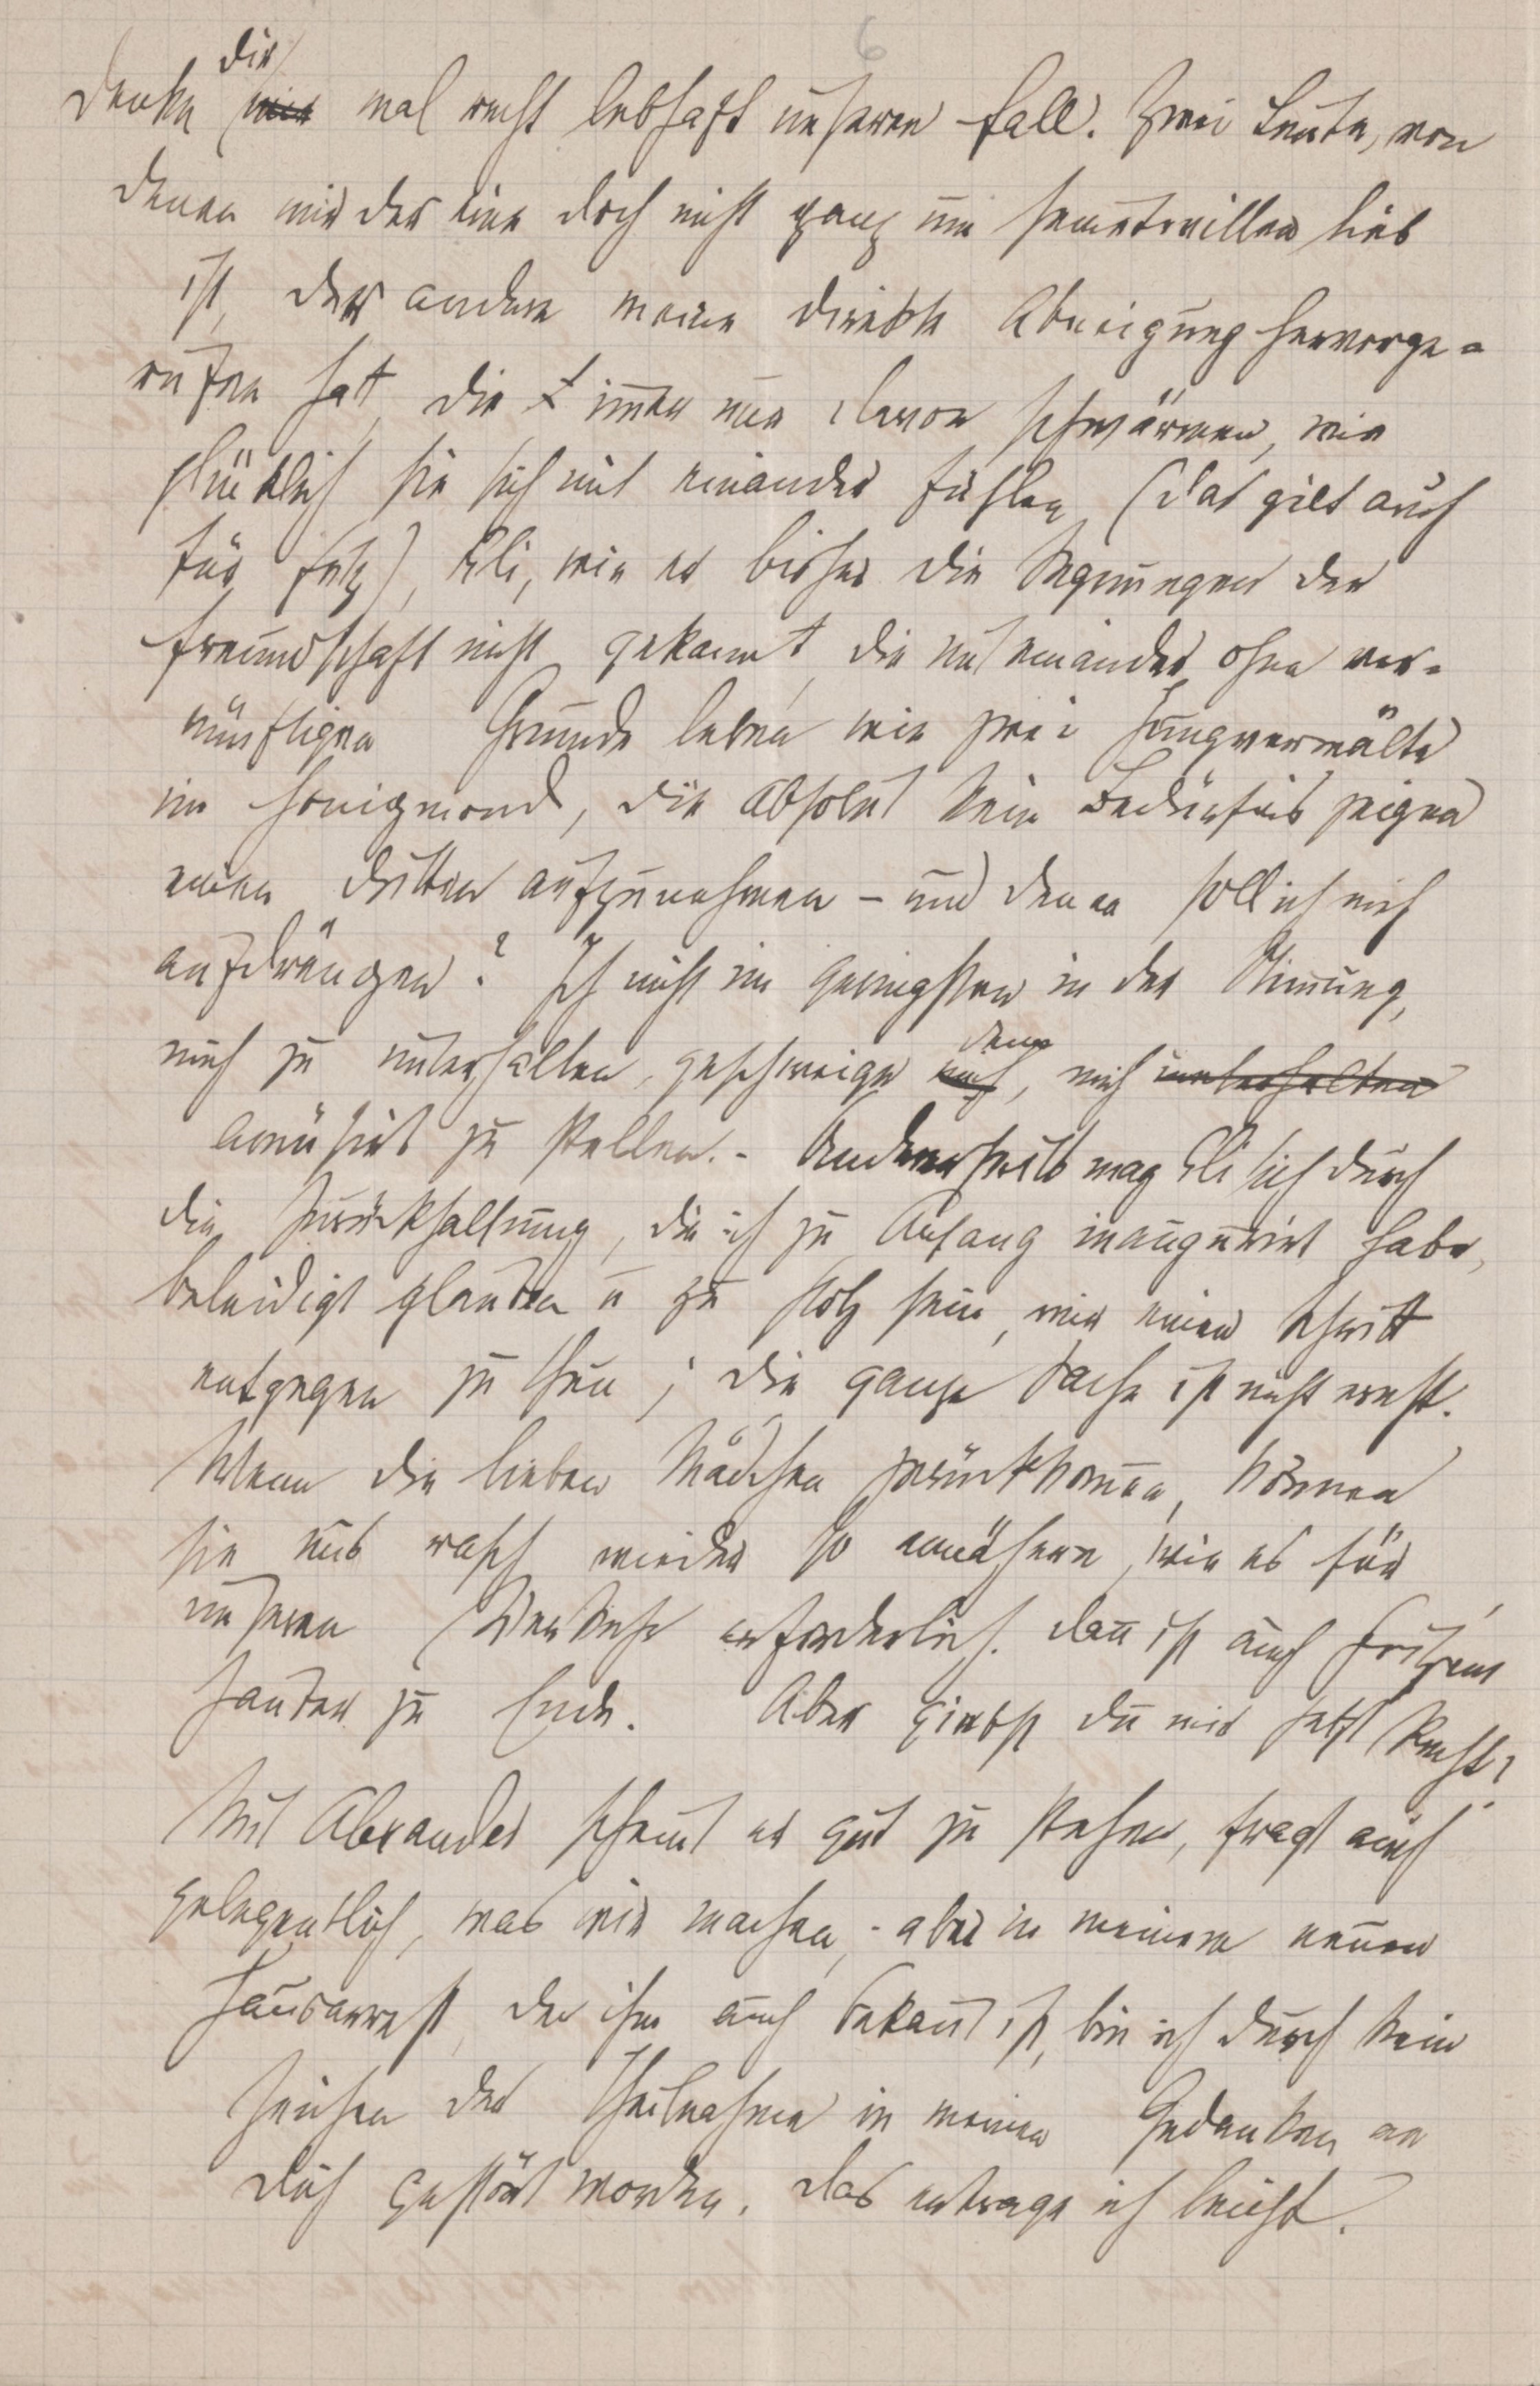 6
Denke dir mal recht lebhaft unseren Fall. Zwei Leute, von
denen mir der eine doch nicht ganz um seinetwillen lieb
ist, der andere meine direkte Abneigung hervorge-
rufen hat, die immer nur davon schwärmen, wie
glücklich sie sich mit einander fühlen (das gilt auch
für Fritz), Eli, wie er bisher die Segnungen der
Freundschaft nicht gekannt, die miteinander ohne ver-
nünftigen Grund leben wie zwei Jungvermälte
im Honigmond, die absolut kein Bedürfnis zeigen
einen dritten aufzunehmen – und denen soll ich mich
aufdrängen? Ich nicht im geringsten in der Stimmung,
mich zu unterhalten, geschweige denn, mich unterhalten
amüsirt zu stellen. - Anderenteils mag Eli sich durch
die Zurückhaltung, die ich zu Anfang inaugurirt habe,
beleidigt glauben u zu stolz sein, mir einen Schritt
entgegen zu thun; die ganze Sache ist nicht ernst.
Wenn die lieben Mädchen zurückkommen, können
sie uns rasch wieder so annähern, wie es für
unseren Verkehr erforderlich. Dann ist auch Fritzens
Zauber zu Ende. Aber giebst du mir jetzt Recht?
Mit Alexander scheint es gut zu stehen, fragt auch
gelegentlich, was wir machen, - aber in meinem neuen
Hausarrest, der ihm auch bekannt ist, bin ich durch kein
Zeichen der Theilnahme in meinen Gedanken an
dich gestört worden. Das ertrage ich leicht.